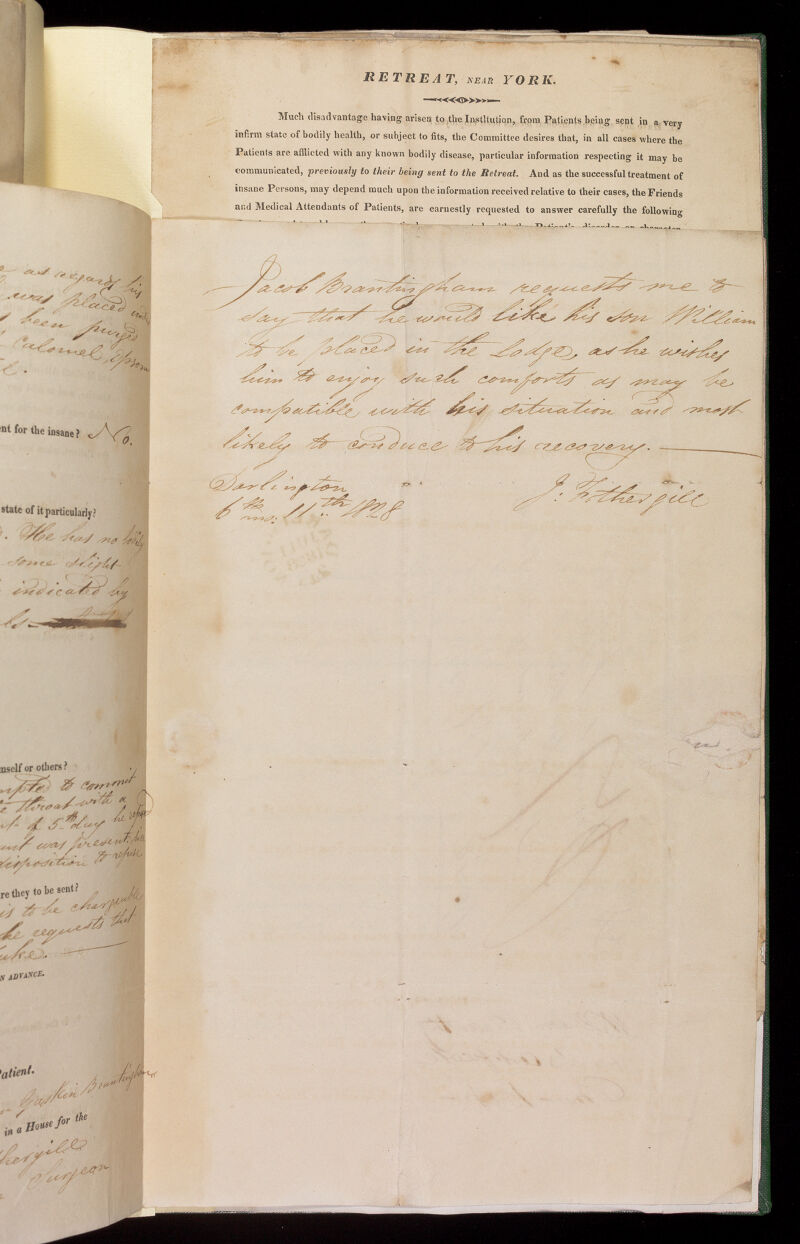 as regards his
was placed
been purged
Calomel, Epsom
ent for the insane? No.
state of it particularly?
. He has no
some slight
indicated by
mself or others?
to commit
throat with a
of 5th day he
was present
disposition to refuse
re they to be sent?
is to be chargeable
he requests that
N ADVANCE.
Patient.
Gaskin Brantingham
in a House for the
Surgeon
RETREAT, NEAR YORK.
Much disadvantage having arisen to the Institution, from Patients being sent in a very
infirm state of bodily health, or subject to fits, the Committee desires that, in all cases where the
Patients are afflicted with any known bodily disease, particular information respecting it may be
communicated, previously to their being sent to the Retreat. And as the successful treatment of
insane Persons, may depend much upon the information received relative to their cases, the Friends
and Medical Attendants of Patients, are earnestly requested to answer carefully the following
Jacob Brantingham requests me to
say that he would like his son William
to be placed in the Lodge, as he wishes
him to enjoy such comforts as may be
compatible with his situation and most
likely to conduce to his recovery.
Darlington J: Fothergill
6th mo: 11th 1828